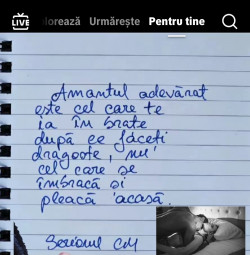 LIVE
lorează Urmărește Pentru tine
Amantul adevărat
este cel care te
ia în brațe
după ce faceți
dragoste, nu
cel care se
îmbracă și
pleacă acasă.